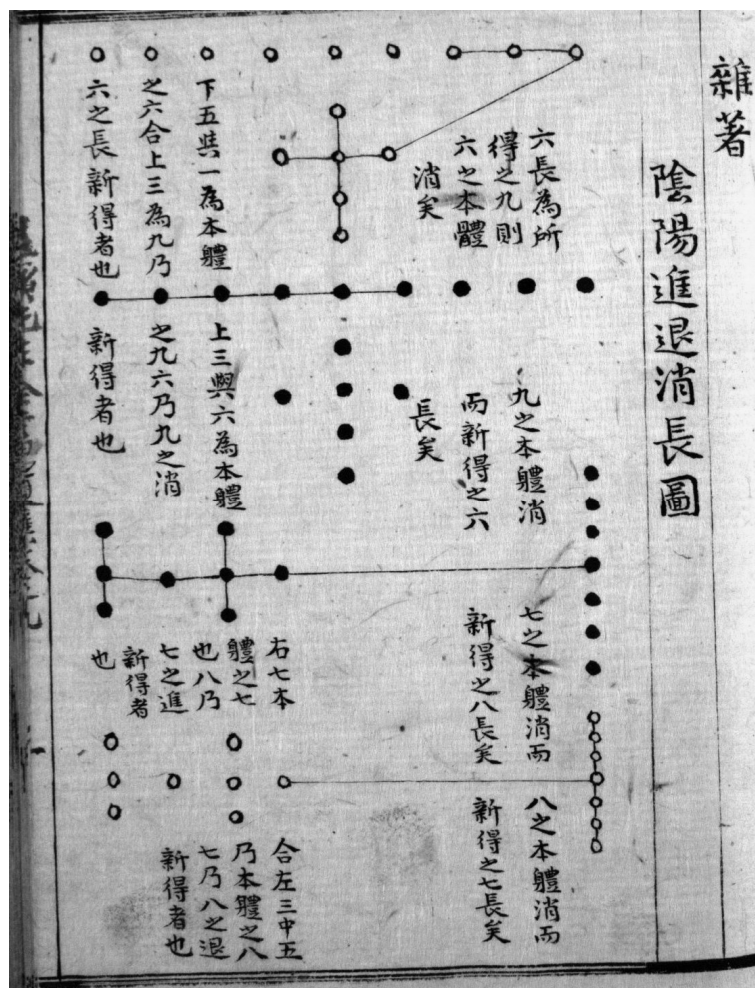 雜著
陰陽進退消長圖
六長為所
得之九則
六之本體
消矣
下五與一為本體
之六合上三為九乃
六之長新得者也
九之本體消
而新得之六
長矣
上三與六為本體
之九六乃九之消
新得者也
七之本體消而
新得之八長矣
右七本
體之七
也八乃
七之進
新得者
也
八之本體消而
新得之七長矣
合左三中五
乃本體之八
七乃八之退
新得者也